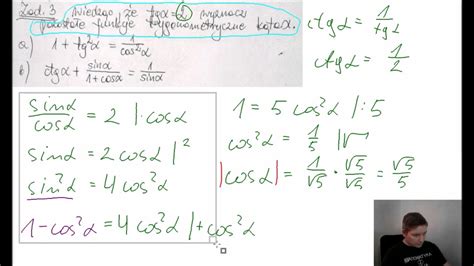 Zad. 3 wiedząc że tgα=2 wyznacz
pozostałe funkcje trygonometryczne kąta α.
a) 1 + tg²α = 1/cos²α
b) ctgα + sinα/(1+cosα) = 1/sinα
ctgα = 1/tgα
ctgα = 1/2
sinα/cosα = 2 |·cosα
sinα = 2cosα |²
sin²α = 4cos²α
1-cos²α = 4cos²α |+cos²α
1 = 5cos²α |:5
cos²α = 1/5 |√
|cosα| = 1/√5 · √5/√5 = √5/5